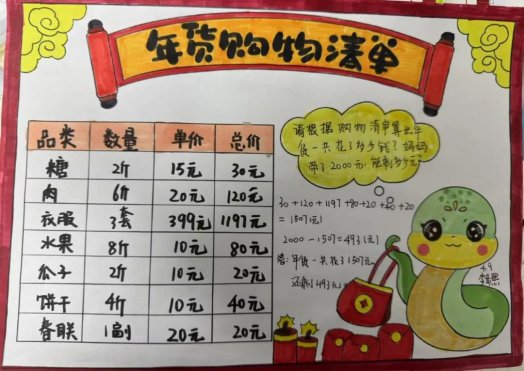 年货购物清单
品类 数量 单价 总价
糖 2斤 15元 30元
肉 6斤 20元 120元
衣服 3套 399元 1197元
水果 8斤 10元 80元
瓜子 2斤 10元 20元
饼干 4斤 10元 40元
春联 1副 20元 20元
请根据购物清单算出年
货一共花了多少钱？妈妈
带了2000元，能剩多少元？
30+120+1197+80+20+40+20
=1507(元)
2000-1507=493(元)
答：年货一共花了1507元
还剩493元